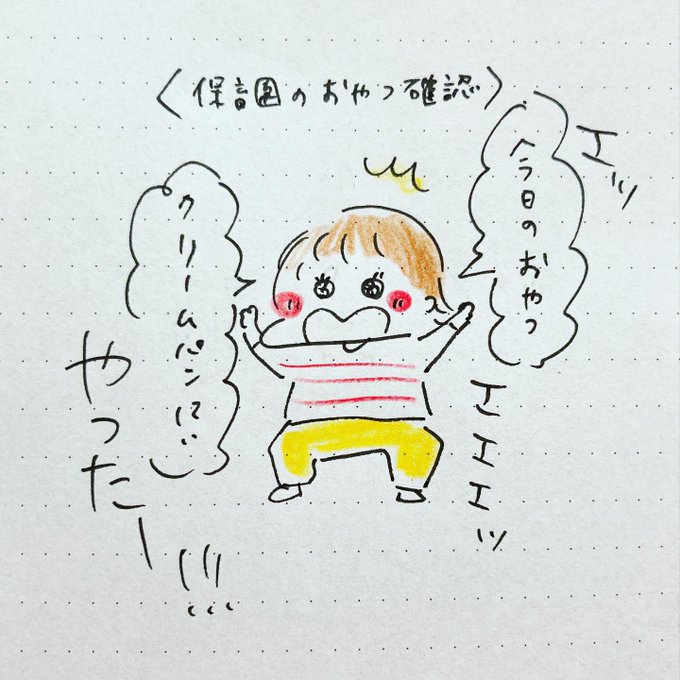 〈保育園のおやつ確認〉
エッ
今日のおやつ
エエエッ
クリームパン
やったー!!!